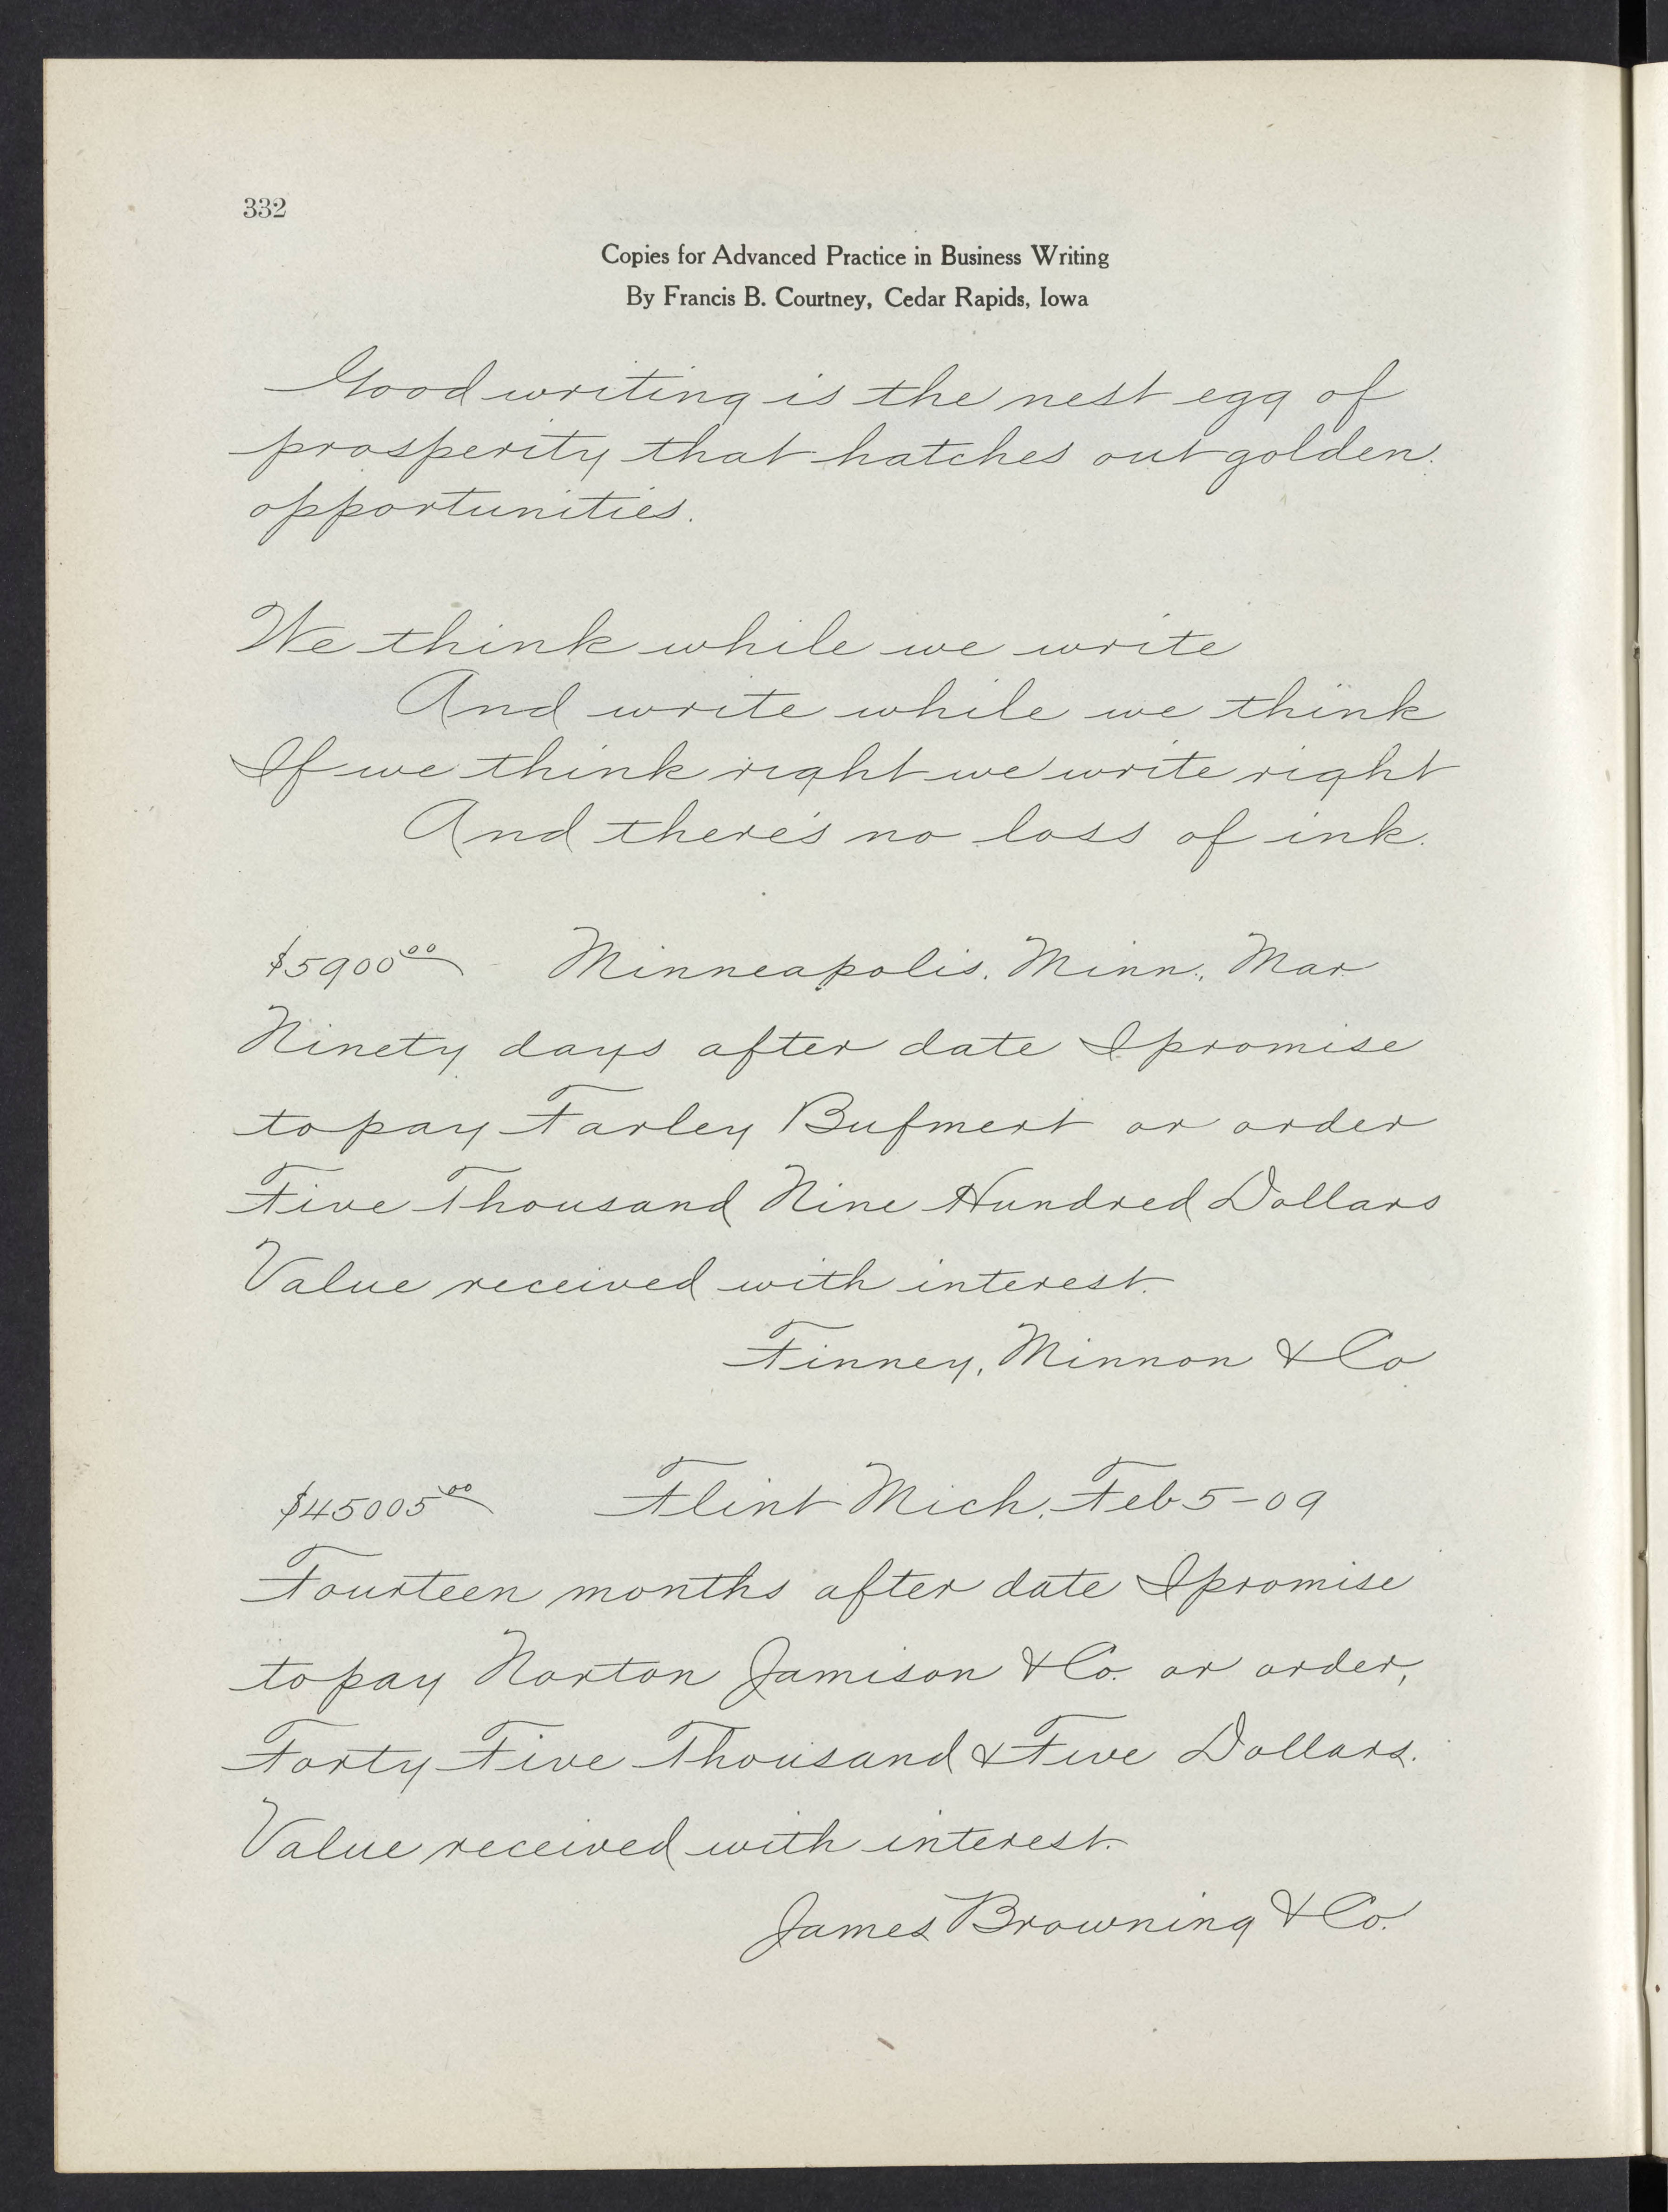 332
Copies for Advanced Practice in Business Writing
By Francis B. Courtney, Cedar Rapids, Iowa
Good writing is the nest egg of
prosperity that hatches out golden
opportunities.
We think while we write
And write while we think
If we think right we write right
And there's no loss of ink.
$590000 Minneapolis, Minn., Mar
Ninety days after date I promise
to pay Farley Bufmert or order
Five Thousand Nine Hundred Dollars
Value received with interest.
Finney, Minnon & Co
$4500500 Flint Mich. Feb 5-09
Fourteen months after date I promise
to pay Norton Jamison & Co. or order,
Forty Five Thousand & Five Dollars.
Value received with interest.
James Browning & Co.